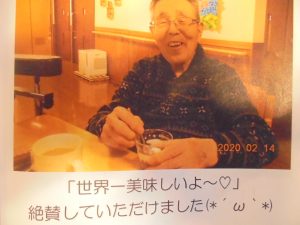 2020 02 14
「世界一美味しいよ～♡」
絶賛していただけました(*´ω｀*)